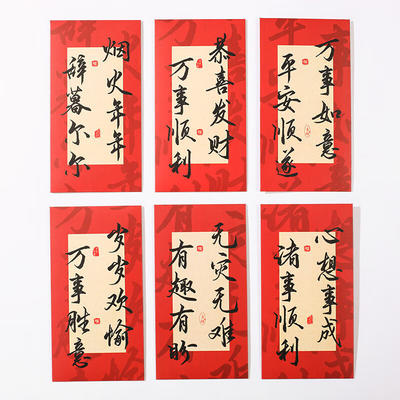 烟火年年
辞暮尔尔
恭喜发财
万事顺利
万事如意
平安顺遂
岁岁欢愉
万事胜意
无灾无难
有趣有盼
心想事成
诸事顺利